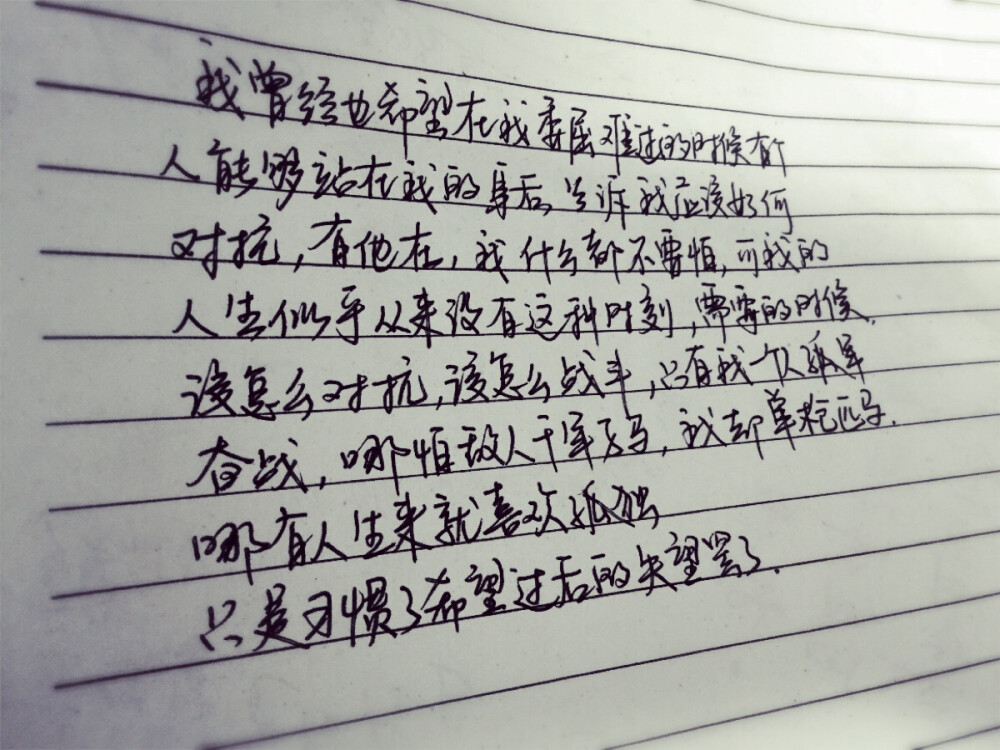 我曾经也希望在我委屈难过的时候有个
人能够站在我的身后,告诉我应该如何
对抗,有他在,我什么都不要怕,可我的
人生似乎从来没有这种时刻,需要的时候.
该怎么对抗,该怎么战斗,只有我一个人孤军
奋战,哪怕敌人千军万马,我却单枪匹马.
哪有人生来就喜欢孤独
只是习惯了希望过后的失望罢了.